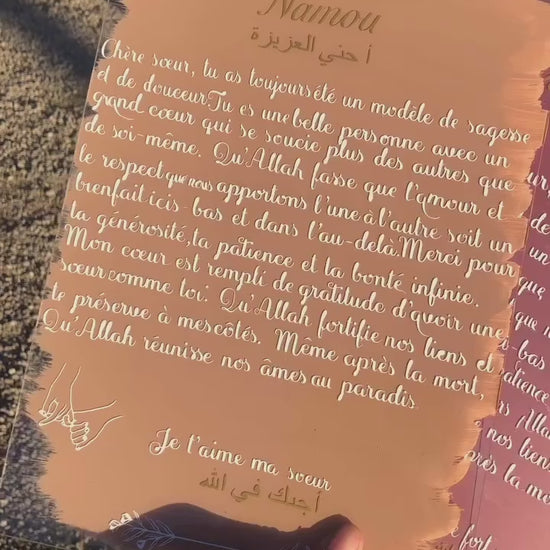 Namou
أ حتي العزيزة
Chère sœur, tu as toujours été un modèle de sagesse
et de douceur. Tu es une belle personne avec un
grand cœur qui se soucie plus des autres que
de soi-même. Qu'Allah fasse que l'amour et
le respect que nous apportons l'une à l'autre soit un
bienfait ici-bas et dans l'au-delà. Merci pour
ta générosité, ta patience et la bonté infinie.
Mon cœur est rempli de gratitude d'avoir une
sœur comme toi. Qu'Allah fortifie nos liens et
te préserve à mes côtés. Même après la mort,
Qu'Allah réunisse nos âmes au paradis.
Je t'aime ma sœur
أحبك في الله